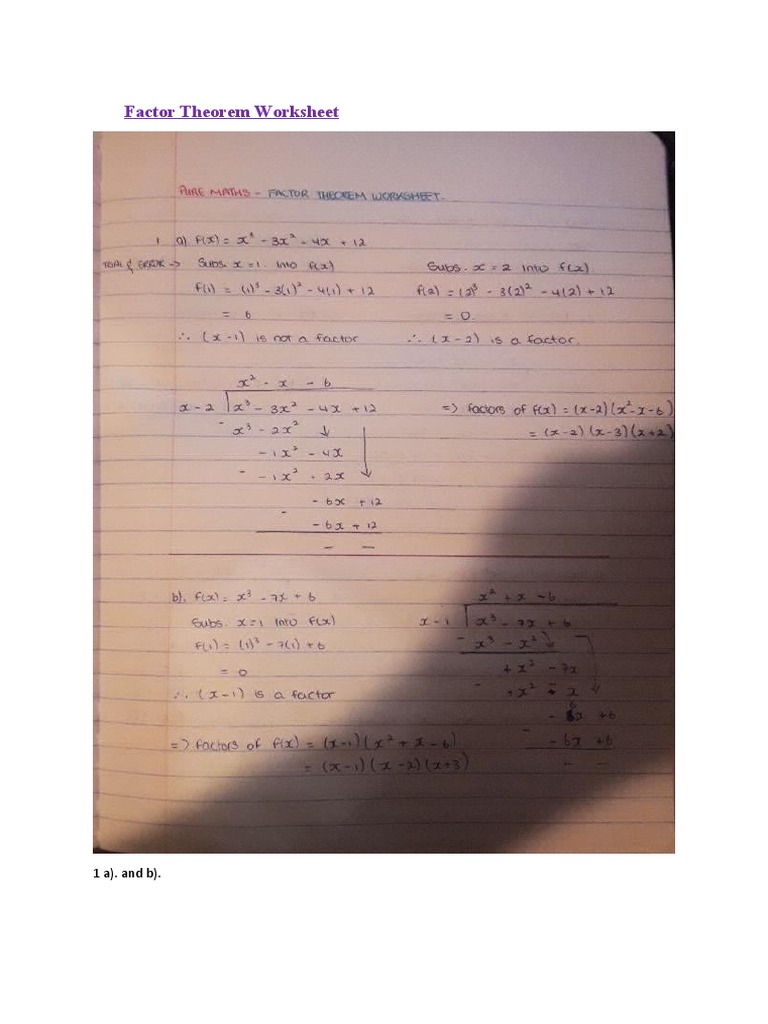 Factor Theorem Worksheet
PURE MATHS - FACTOR THEOREM WORKSHEET.
1 a) f(x) = x³ - 3x² - 4x + 12
TRIAL & ERROR → Subs. x = 1 into f(x)
f(1) = (1)³ - 3(1)² - 4(1) + 12
= 6
∴ (x-1) is not a factor
Subs. x = 2 into f(x)
f(2) = (2)³ - 3(2)² - 4(2) + 12
= 0.
∴ (x-2) is a factor.
x² - x - 6
x - 2 | x³ - 3x² - 4x + 12
- x³ - 2x² ↓
- 1x² - 4x
- - 1x² + 2x
- 6x + 12
- - 6x + 12
- -
=> factors of f(x) = (x-2)(x²-x-6)
= (x-2)(x-3)(x+2)
b). f(x) = x³ - 7x + 6
Subs. x=1 into f(x)
f(1) = (1)³ - 7(1) + 6
= 0
∴ (x-1) is a factor
x² + x - 6
x - 1 | x³ - 7x + 6
- x³ - x² ↓
+ x² - 7x
- + x² - x
- 6x + 6
- - 6x + 6
- -
=> factors of f(x) = (x-1)(x² + x - 6)
= (x-1)(x-2)(x+3)
1 a). and b).